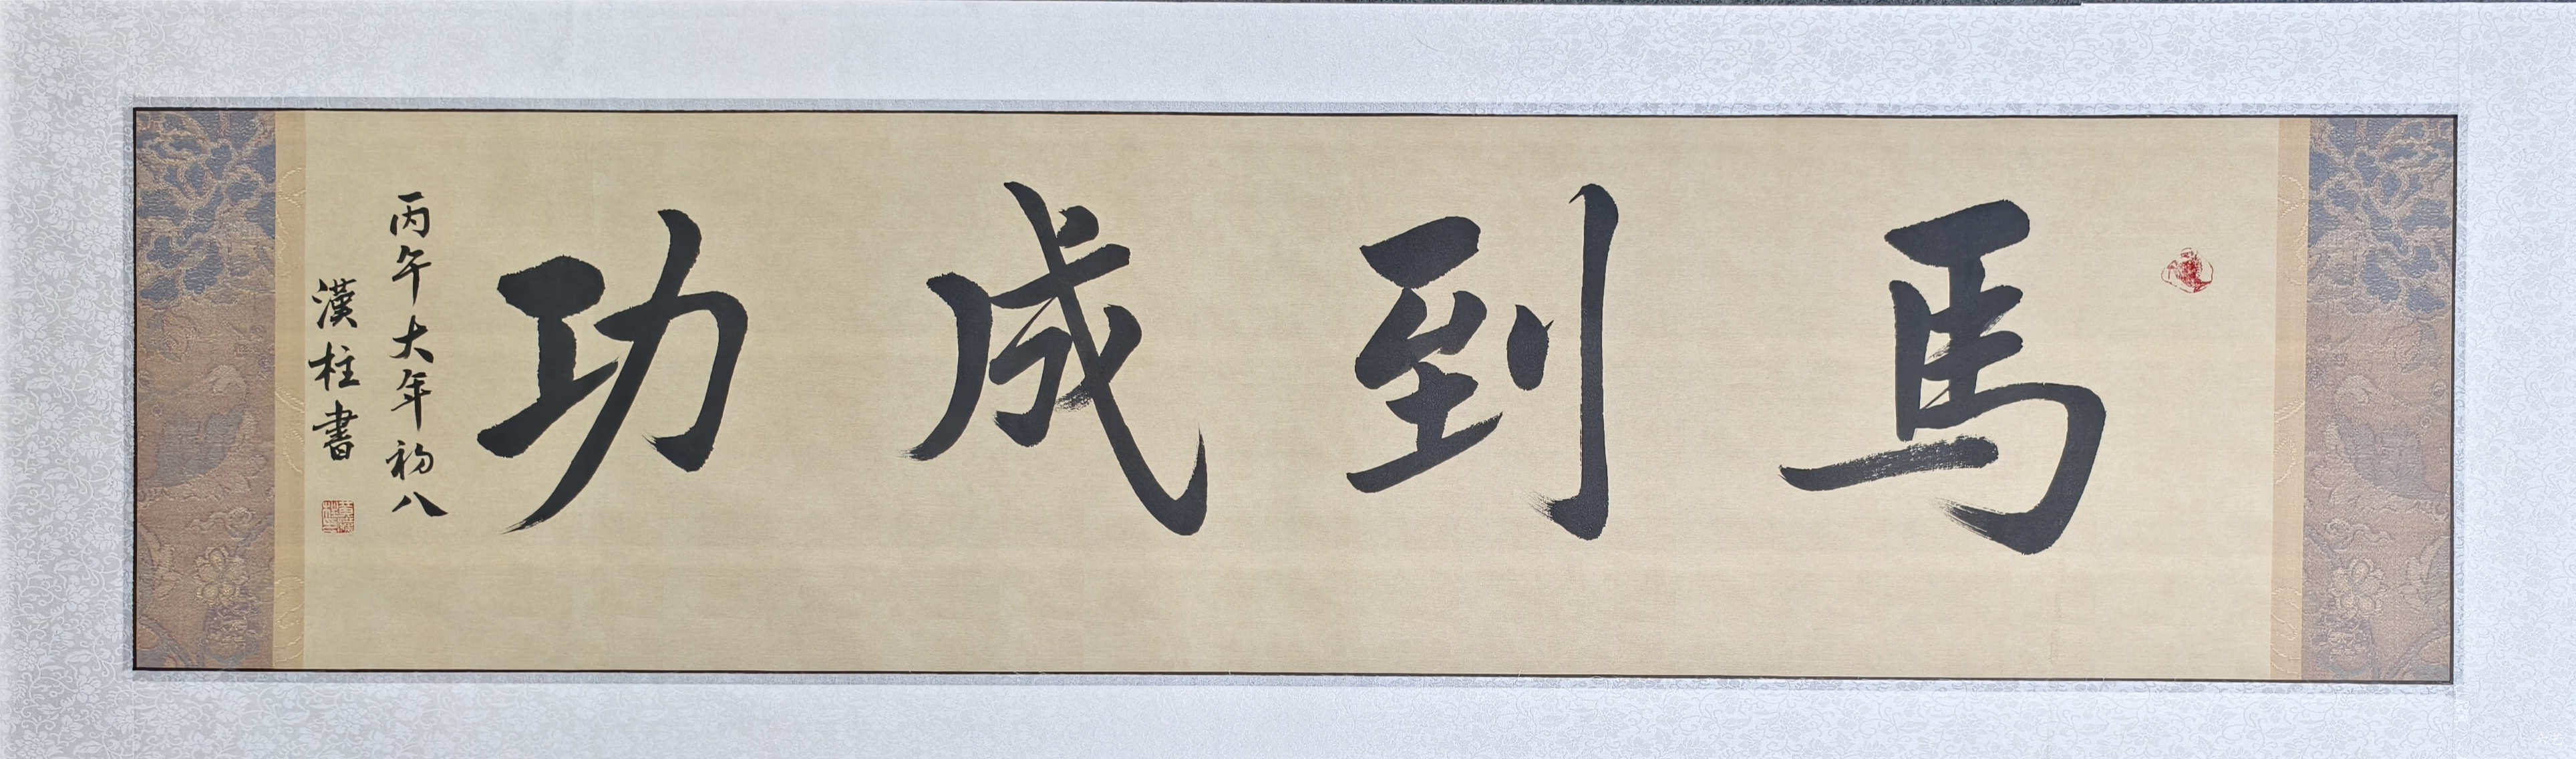 馬到成功
丙午大年初八
漢柱書